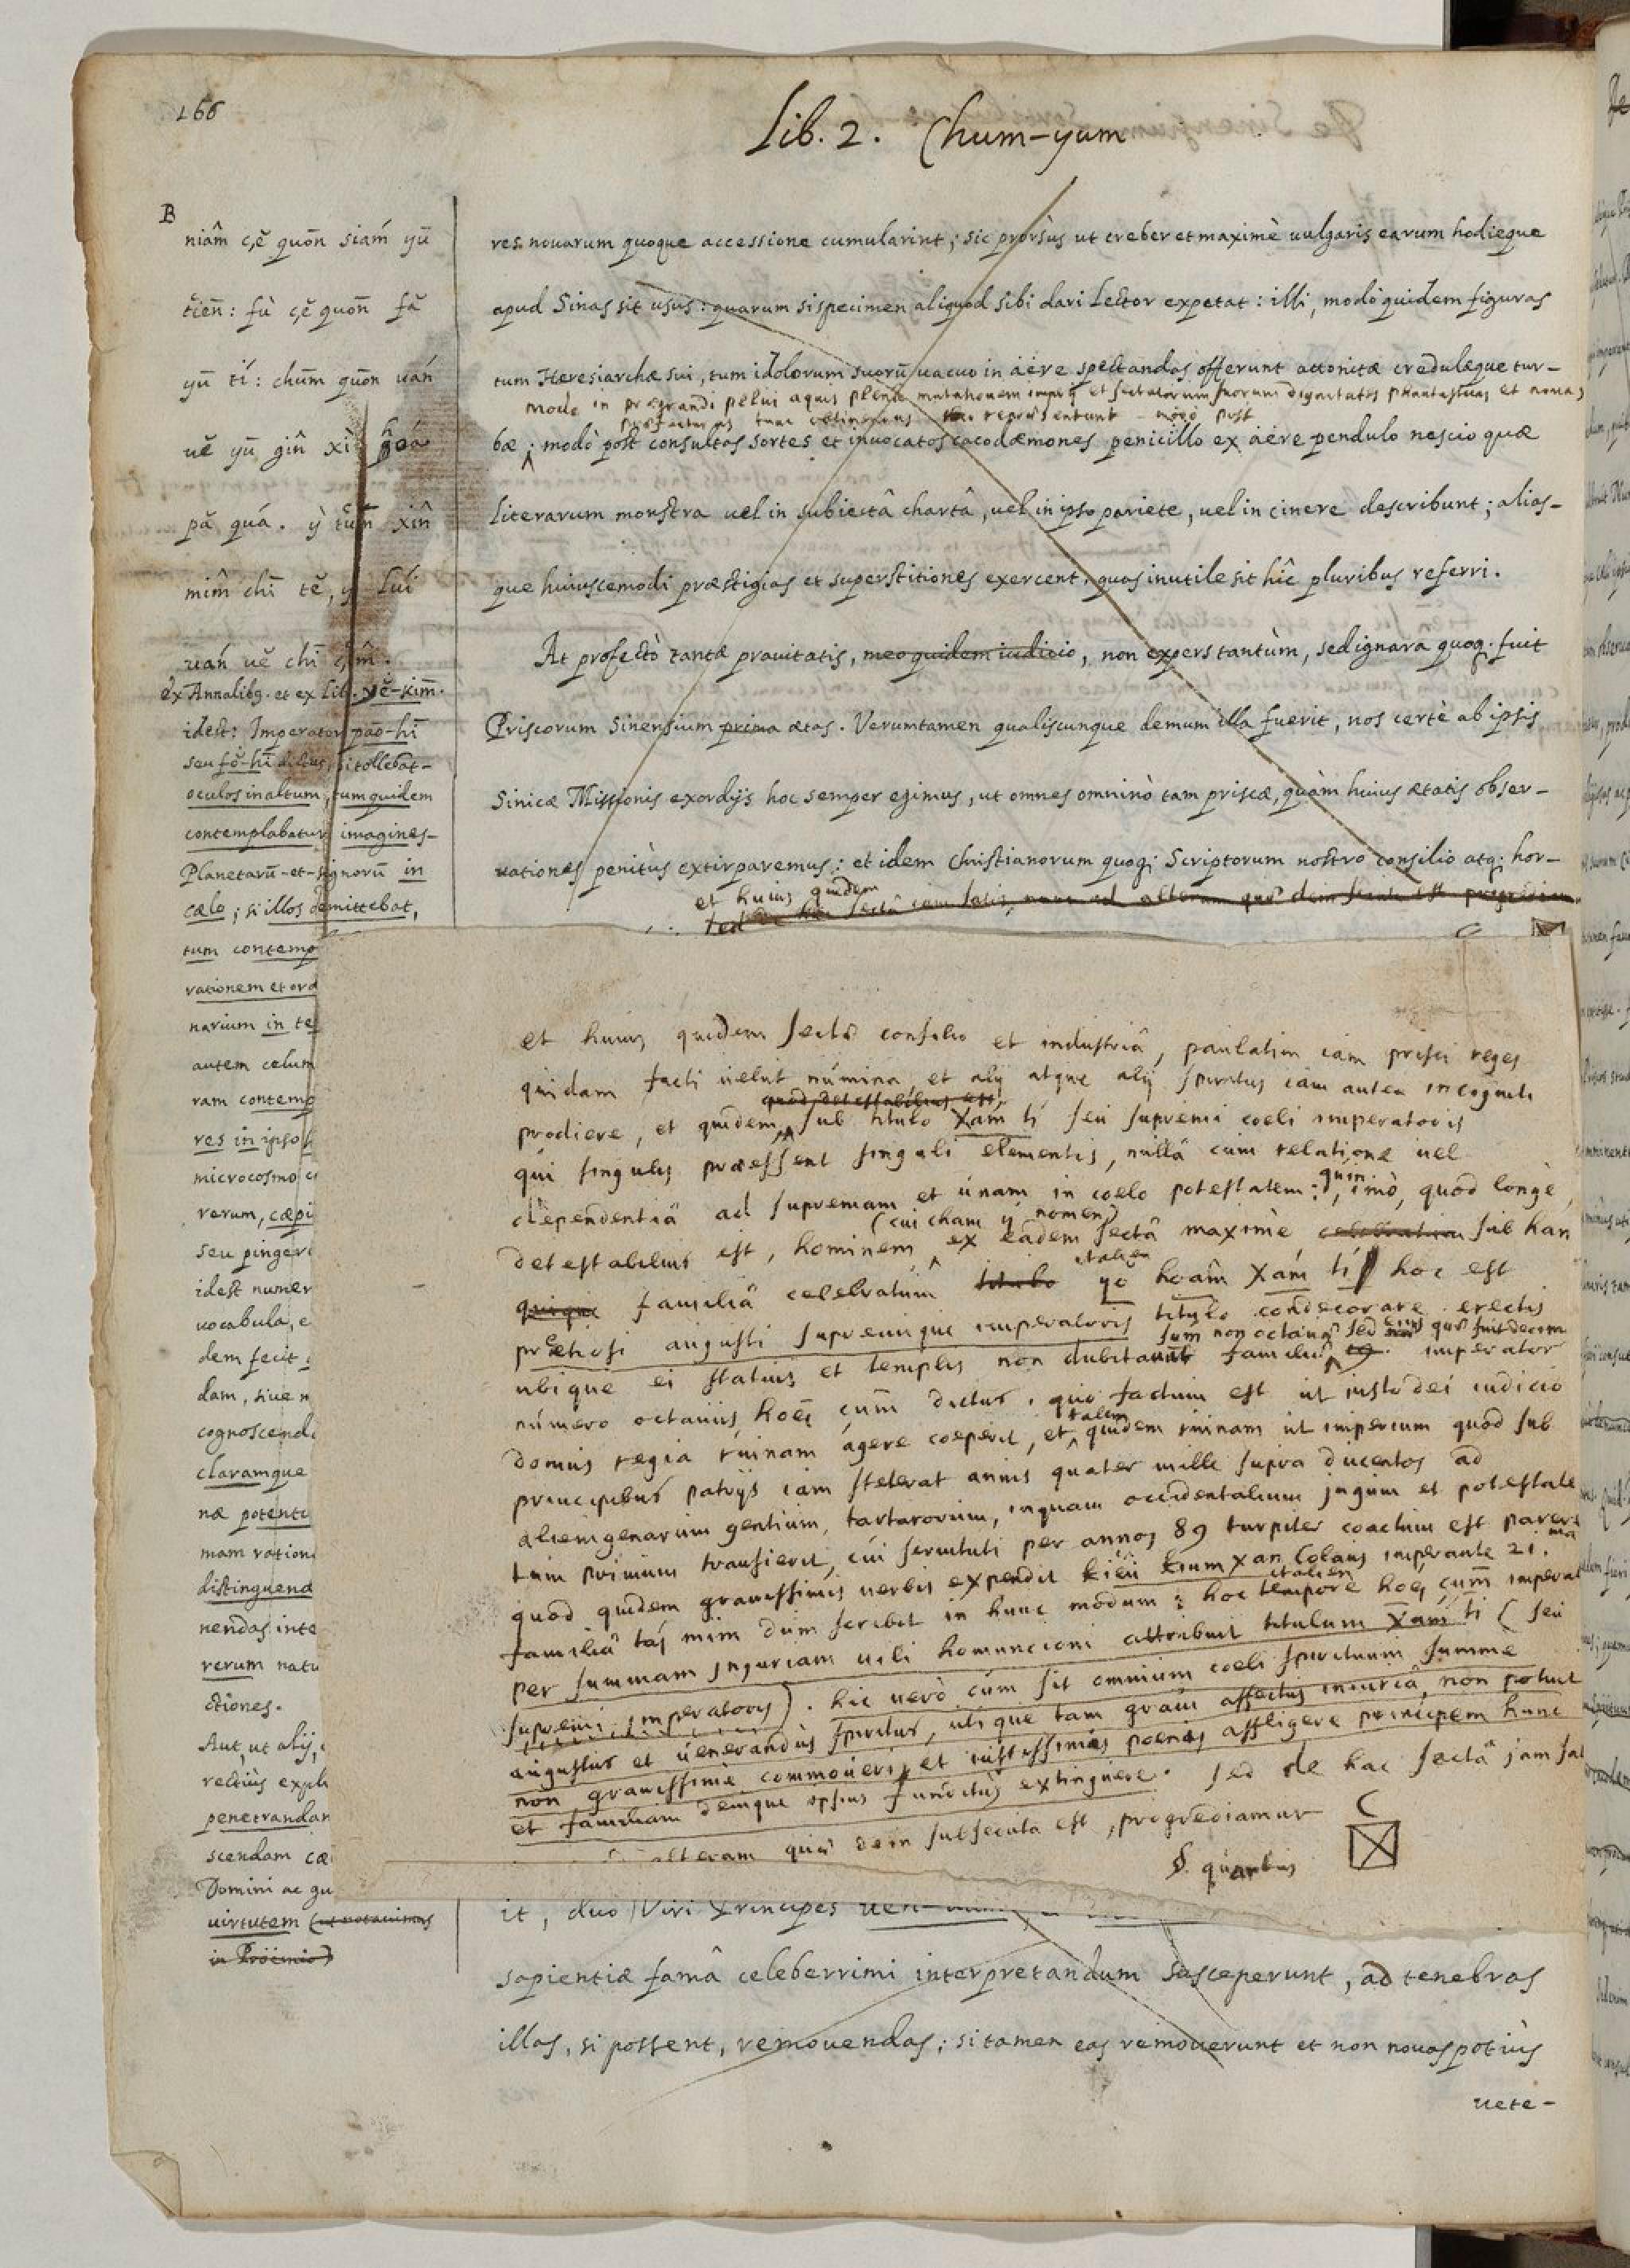 166
Lib. 2. Chum-yum
B
niâm çĕ quōn siám yū
tiēn: fù çĕ quōn fă
yū tí: chūm quōn uán
uĕ yū gîn xì
pă quá. ỳ tūm xîn
mîm chī tĕ, ỳ lúi
uán uĕ chī çîm.
ex Annalibq. et ex lib. yĕ-kīm.
idest: Imperator pāo-hī
seu fŏ-hī dictus, si tollebat
oculos in altum, tum quidem
contemplabatur imagines
Planetarū et signorū in
cælo; si illos demittebat,
tum contemp
rationem et ord
narium in te
autem celum
ram contemp
res in ipso h
microcosmo
rerum, cæpi
seu pinger
idest numer
uocabula, e
dem fecit
dam, siue n
cognoscend
claramque
næ potenti
mam ration
distinguend
nendas inte
rerum natu
ctiones.
Aut, ut alij,
rectiùs expli
penetrandam
scendam cæ
Domini ac gu
uirtutem (ut notauimus
in Proëmio)
res nouarum quoque accessione cumularint; sic prorsùs ut creber et maximè uulgaris earum hodieque
apud Sinas sit usus: quarum si specimen aliquod sibi dari Lector expetat: illi, modò quidem figuras
tum Heresiarchæ sui, tum idolorum suorū uacuo in aëre spectandas offerunt attonitæ credulæque tur-
modo in prægrandi pelui aquis plena mutationem imperij et sectatorum suorum dignitates phantasticas et nouas
repræsentant modò post
bæ; modò post consultas sortes et inuocatos cacodæmones penicillo ex aëre pendulo nescio quæ
literarum monstra uel in subiectâ chartâ, uel in ipso pariete, uel in cinere describunt; alias-
que huiuscemodi præstigias et superstitiones exercent, quas inutile sit hîc pluribus referri.
At profectò tantæ prauitatis, meo quidem iudicio, non expers tantùm, sed ignara quoq. fuit
Priscorum Sinensium prima ætas. Verumtamen qualiscunque demum illa fuerit, nos certè ab ipsis
Sinicæ Missionis exordijs hoc semper egimus, ut omnes omninò tam priscæ, quàm huius ætatis obser-
uationes penitùs extirparemus: et idem Christianorum quoq; Scriptorum nostro consilio atq; hor-
et huius quidem
sed de hac sectâ iam satis, nunc ad alteram quæ dein secuta est progrediam
et huius quidem sectæ consilio et industriâ, paulatim iam prisci reges
quidam facti uelut númina, et alij atque alij spiritus iam antea incogniti
quod detestabilius est,
prodiere, et quidem sub titulo Xám tí seu supremi coeli imperatoris
qui singulis præessent singuli elementis, nullâ cum relatione uel
dependentiâ ad supremam et únam in coelo potestatem: quin, imò, quod longè
(cui cham ý nomen)
detestabilius est, hominem ex eadem sectâ maximè celebratum sub han
quinque familiâ celebratum titulo italien yo hoâm Xám tí hoc est
prætiosi augusti supremique imperatoris titulo condecorare erectis
ubique ei statuis et templis non dubitauit familiæ súm non octauq sed eius quæ fuit decim imperator
número octauus hoēi çūm dictus. quo factum est ut iusto dei iudicio
domus regia ruinam agere coeperit, et talem quidem ruinam ut imperium quod sub
principibus patrijs iam steterat annis quater mille supra ducentos ad
alienigenarum gentium, tartarorum, inquam occidentalium jugum et potestate
tum primum transierit, cúi seruituti per annos 89 turpiter coactum est parere
quod quidem grauissimis uerbis expendit kiēū kium xan Colaus imperante 21.mâ
familiâ táj mim dum scribit in hunc modum: hoc tempore italien hoēi çūm imperat
per summam jnjuriam uili homuncioni attribuit titulum Xám tí (seu
supremi imperatoris). hic uerò cùm sit omnium coeli spirituum summe
augustus et uenerandus spiritus, utique tam graui affectus iniuriâ, non potuit
non grauissimè commoueri, et iustissimis poenis affligere principem hunc
et familiam denique ipsius funditùs extinguere. sed de hac sectâ jam sat
alteram quæ dein subsecuta est, progrediamur
§. quartus
C
it, duo Viri Principes
sapientiæ famâ celeberrimi interpretandum susceperunt, ad tenebras
illas, si possent, remouendas; si tamen eas remouerunt et non nouas potiùs
uete-